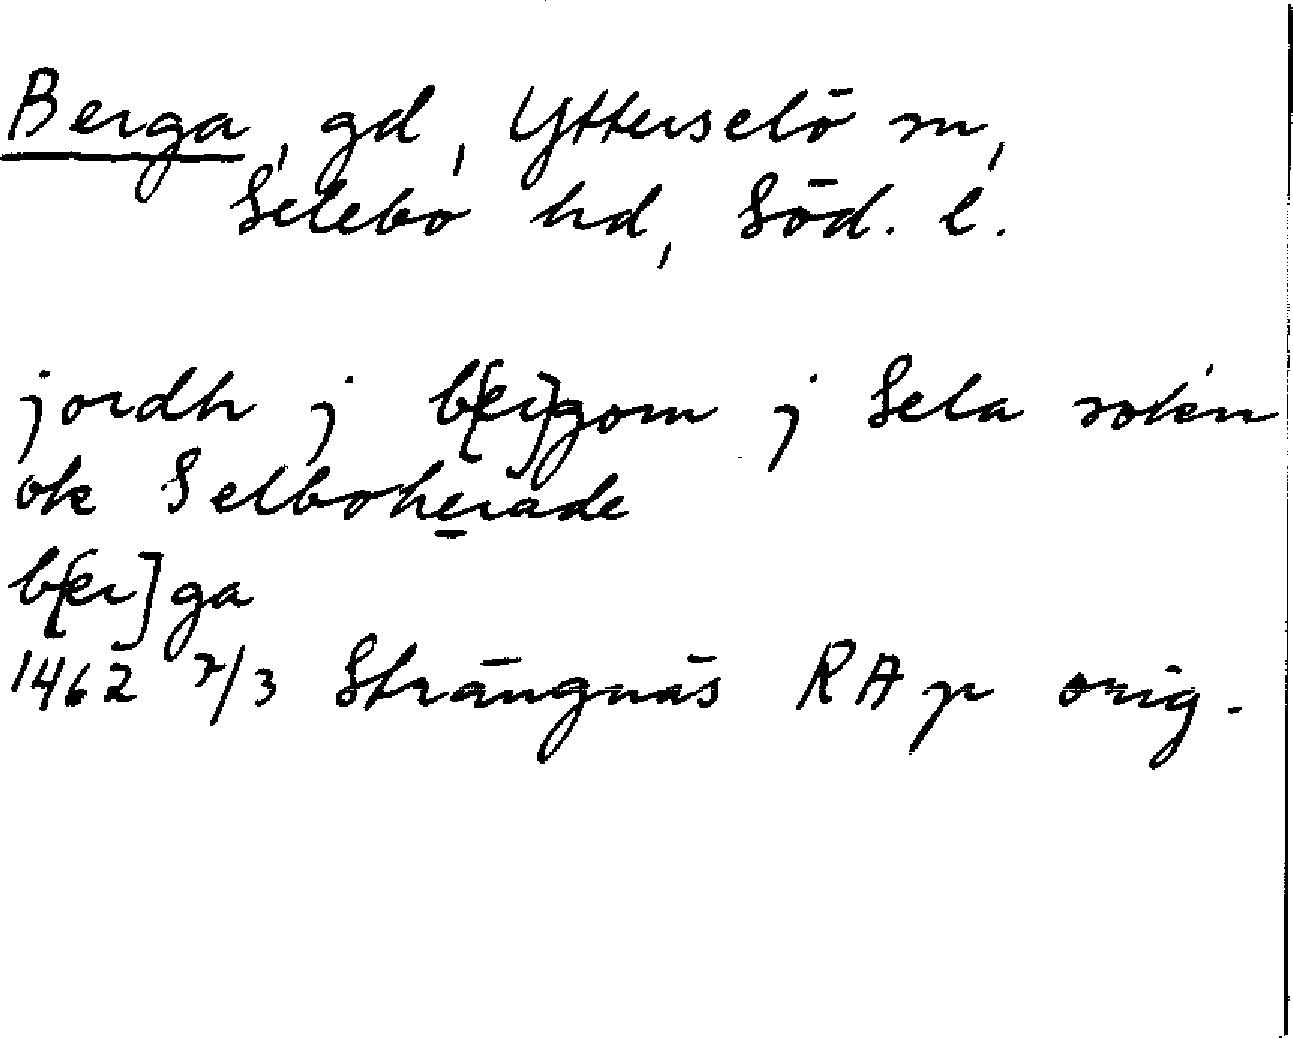 Berga, gd, Ytterselö sn,
Selebo hd, Söd. l.
jordh j b[er]gom j Sela sokn
ok Selboherade
b[er]ga
1462 2/3 Strängnäs RAp orig.